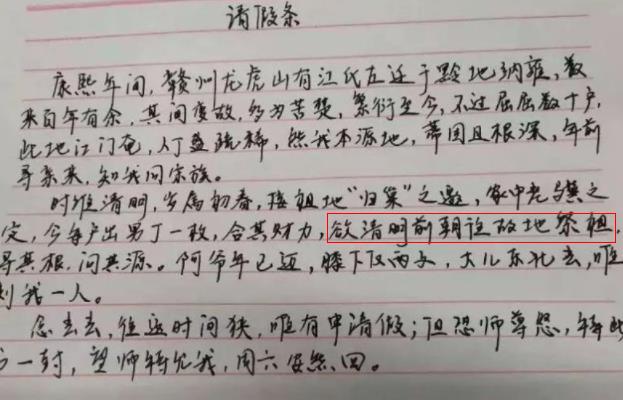 请假条
康熙年间，赣州龙虎山有江氏左迁于黔地纳雍，数
来百年有余，其间变故，多为苦楚，繁衍至今，不过屈屈数十户，
此地江门奄，人丁益疏稀，然我本源地，蒂固且根深，年前
寻亲来，知我同宗族。
时维清明，岁属初春，接祖地“归巢”之邀，家中老
定，今每户出男丁一枚，合其财力，欲清明前朝往故地祭祖，
寻其根，问其源。阿爷年已迈，膝下仅两女，大儿东北去，唯
到我一人。
念去去，往返时间狭，唯有申请假；但恐师尊怒，特此
一封，望师特允我，周六安然回。